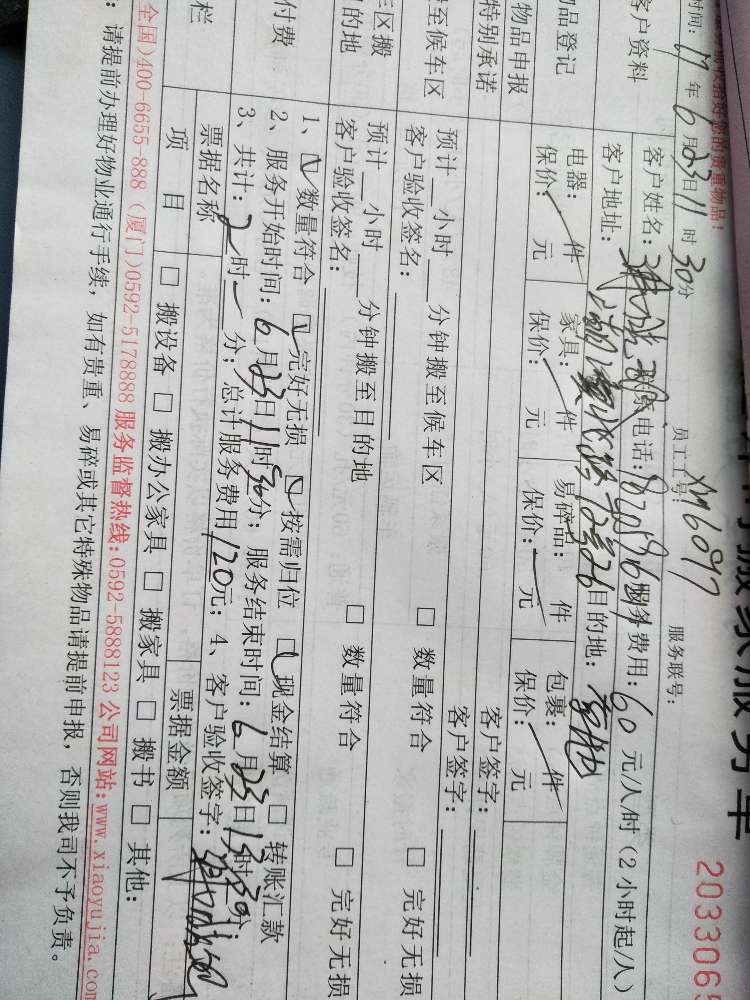 搬家服务单
203306
员工工号：XM6097 服务联号：
收拾好您的贵重物品！
时间：17年6月23日11时30分
客户资料
客户姓名： 联系电话： 服务费用：60元/人/时（2小时起/人）
客户地址： 目的地：
物品登记
电器： 件 家具： 件 易碎品： 件 包裹： 件
保价： 元 保价： 元 保价： 元 保价： 元
物品申报
特别承诺
客户签字：
客户签字：
至候车区
预计 小时 分钟搬至候车区 □ 数量符合 □ 完好无损
客户验收签名：
区搬
的地
预计 小时 分钟搬至目的地 □ 数量符合 □ 完好无损
客户验收签名：
付费
1、☑数量符合 ☑完好无损 ☑按需归位 ☑现金结算 □ 转账汇款
2、服务开始时间：6月23日11时30分；服务结束时间：6月23日13时30分；
3、共计：2时 分；总计服务费用120元；4、客户验收签字：
栏
票据名称 票据金额
项 目 □ 搬设备 □ 搬办公家具 □ 搬家具 □ 搬书 □ 其他：
全国)400-6655-888（厦门)0592-5178888 服务监督热线:0592-5888123 公司网站:www.xiaoyujia.com
：请提前办理好物业通行手续，如有贵重、易碎或其它特殊物品请提前申报，否则我司不予负责。